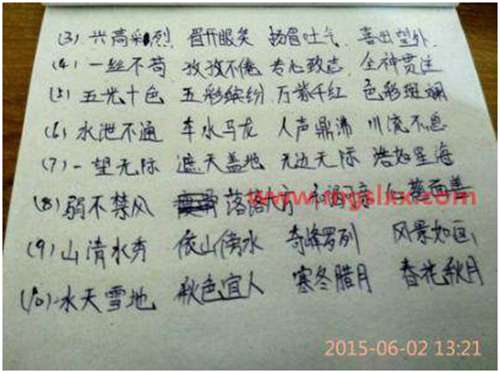 (3) 兴高彩烈 眉开眼笑 扬眉吐气 喜出望外
(4) 一丝不苟 孜孜不倦 专心致志 全神贯注
(5) 五光十色 五彩缤纷 万紫千红 色彩斑斓
(6) 水泄不通 车水马龙 人声鼎沸 川流不息
(7) 一望无际 遮天盖地 无边无际 浩如星海
(8) 弱不禁风 落落大方
www.mgslxx.com
(9) 山清水秀 依山傍水 奇峰罗列 风景如画
(10) 水天雪地 秋色宜人 寒冬腊月 春花秋月
2015-06-02 13:21